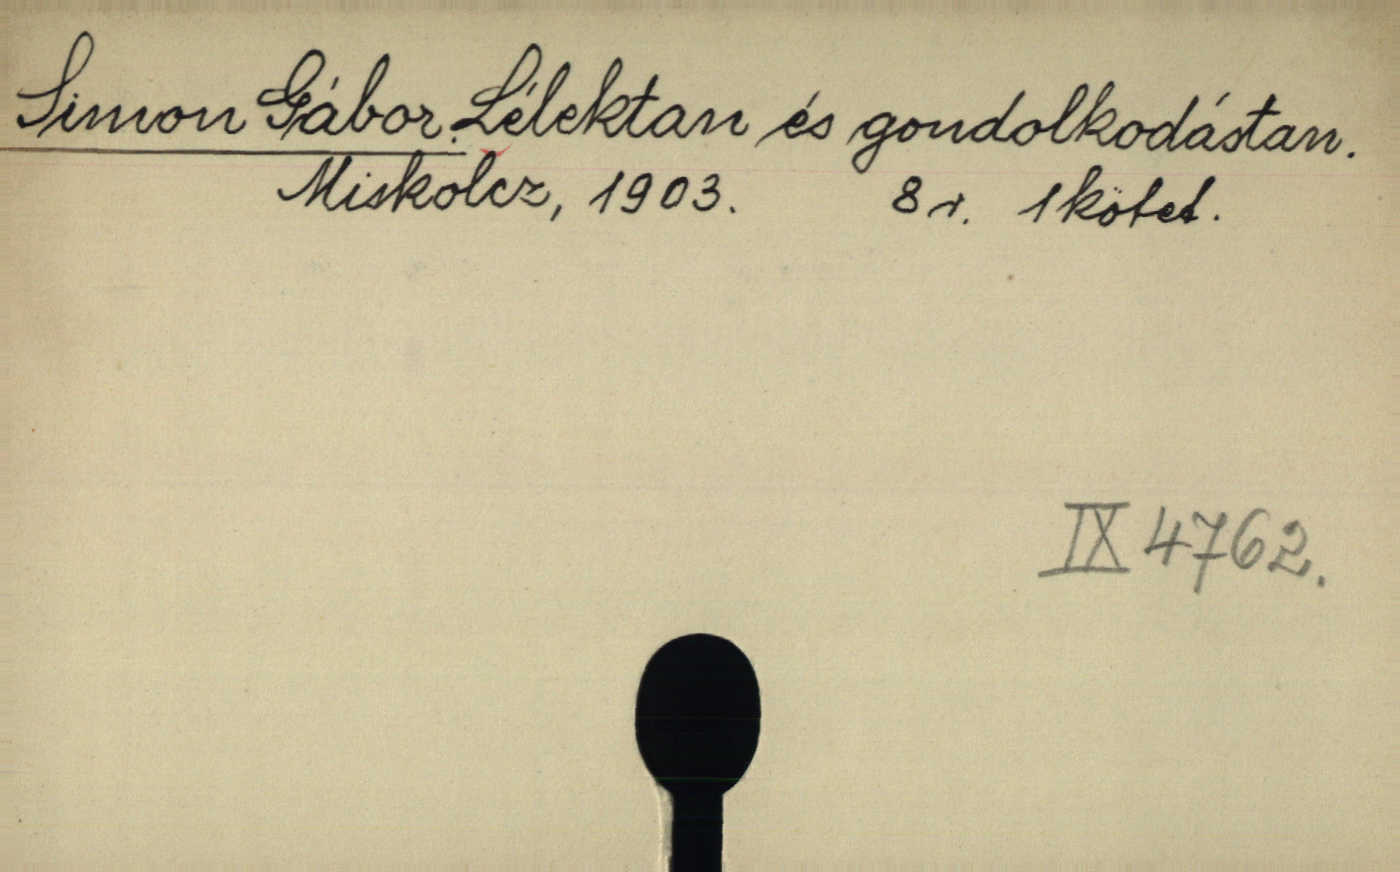 Simon Gábor. Lélektan és gondolkodástan.
Miskolcz, 1903. 8 r. 1 kötet.
IX 4762.